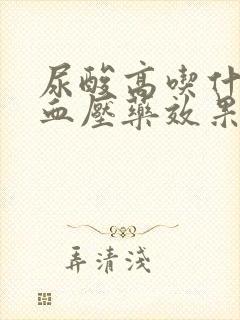 尿酸高喫什
血壓藥效果
弄清淺